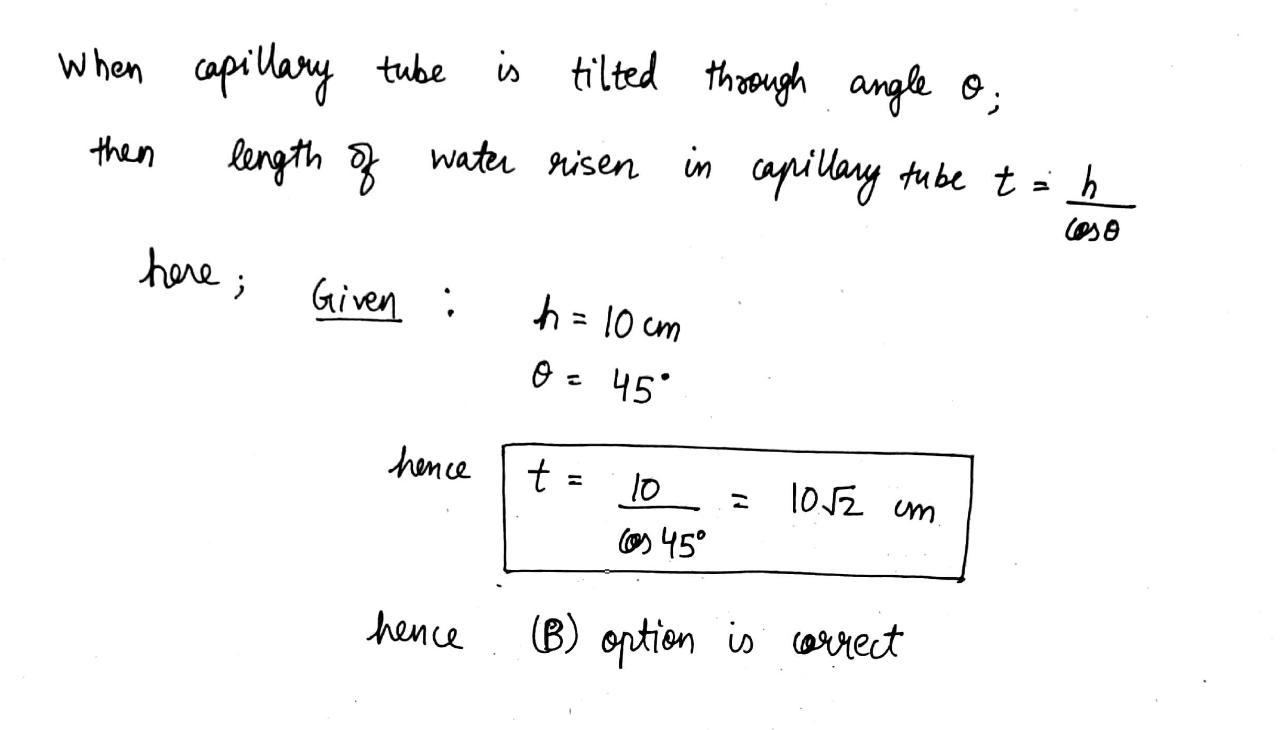 When capillary tube is tilted through angle θ;
then length of water risen in capillary tube t = h/cosθ
here; Given : h = 10 cm
θ = 45°
hence t = 10/cos 45° = 10√2 cm
hence (B) option is correct